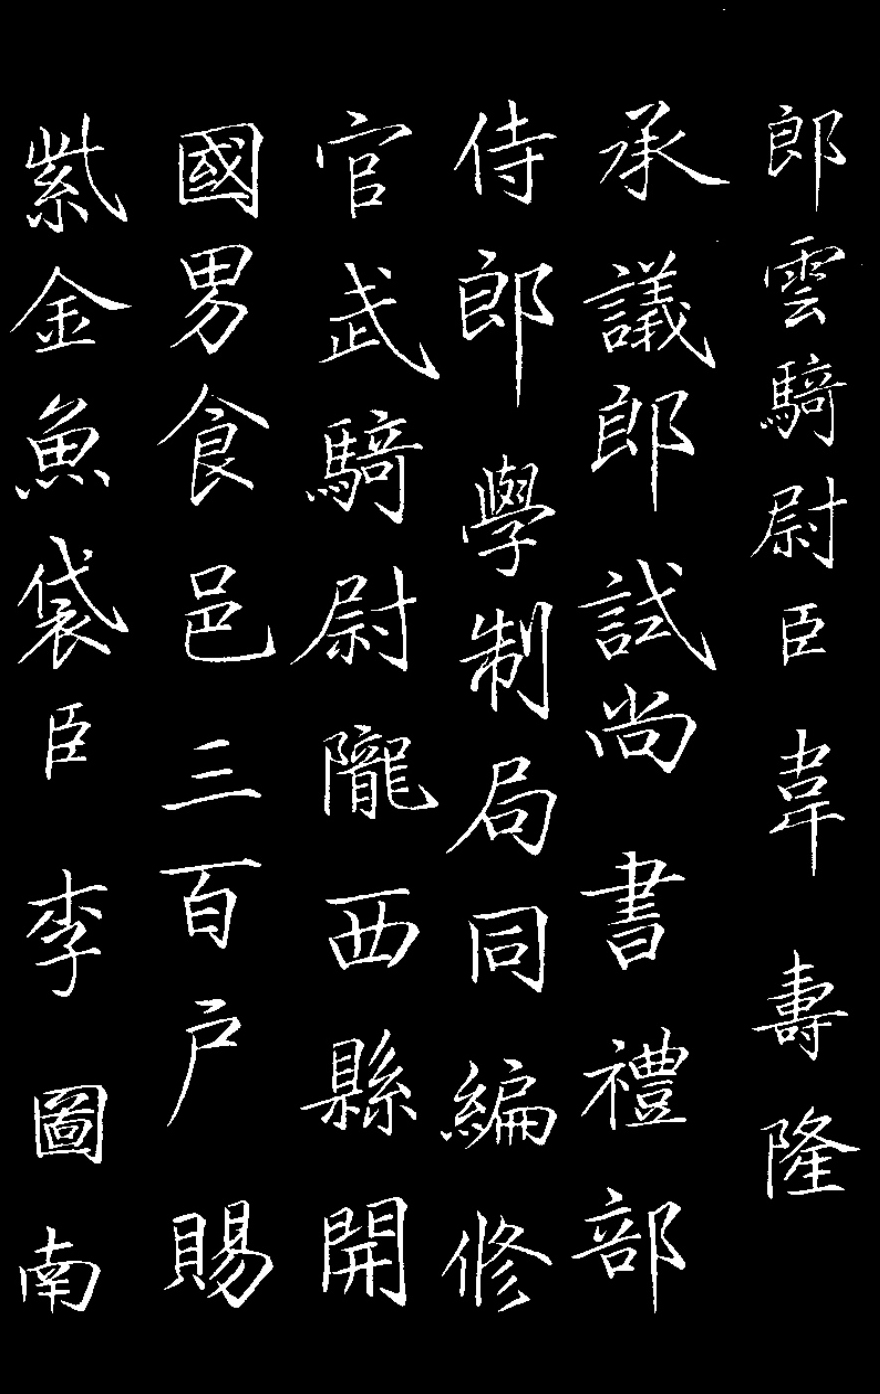 郎雲騎尉臣韋壽隆
承議郎試尚書禮部
侍郎學制局同編修
官武騎尉隴西縣開
國男食邑三百户賜
紫金魚袋臣李圖南